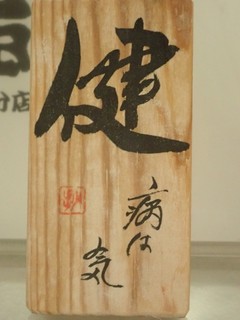 健
病は
気
分店